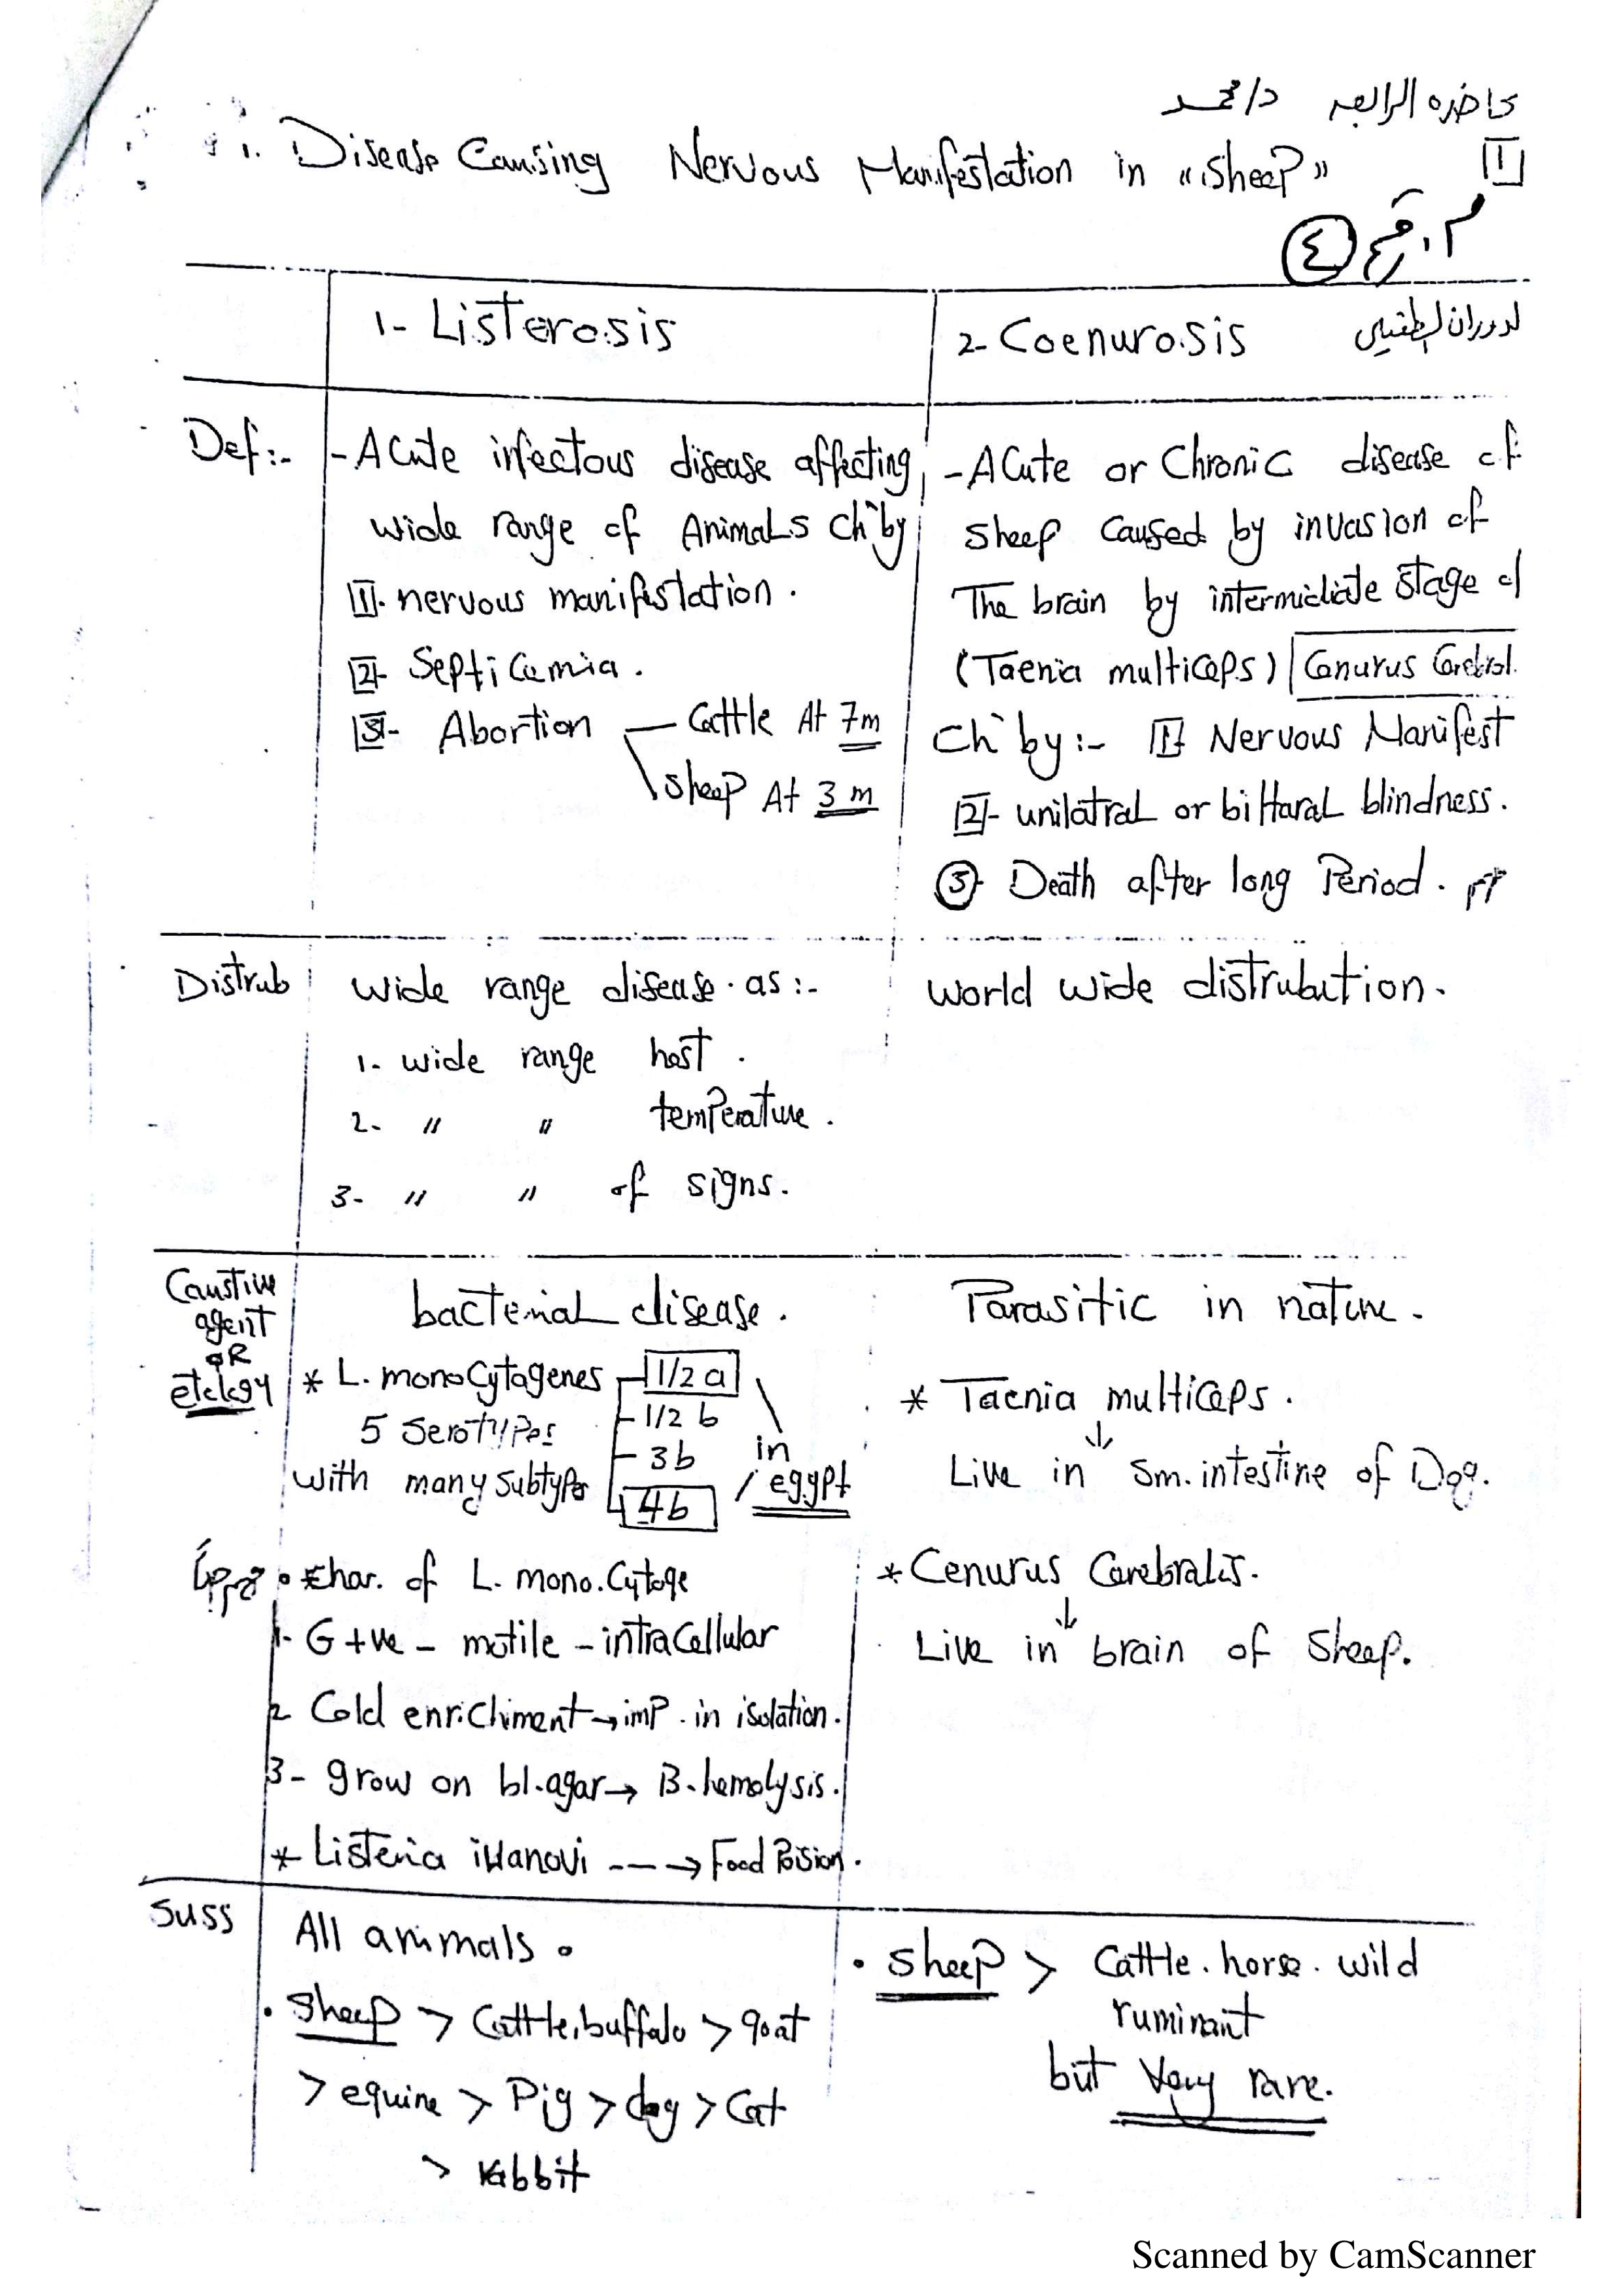 محاضره الرابعه د/محمد
1. Disease Causing Nervous Manifestation in «Sheep» 1
٤
1- Listerosis
2- Coenurosis الدوران الطفيلى
Def:-
- Acute infectous disease affecting
wide range of Animals ch by
1. nervous manifistation.
2- Septicemia.
3- Abortion — Cattle At 7m
sheep At 3 m
- Acute or Chronic disease of
sheep caused by invasion of
The brain by intermidiate stage of
(Taenia multiceps) Cenurus Cerebral.
Ch by:- 1- Nervous Manifest
2- unilatral or biltaral blindness.
3- Death after long Period.
Distrub
wide range disease. as:-
1. wide range host.
2- " " temperature.
3- " " of signs.
world wide distrubution.
Caustive
agent
OR
etology
bacterial disease.
* L. monocytogenes 1/2 a
5 Serotypes 1/2 b
with many subtyps 3b
4b
in
egypt
* char. of L. mono.cytoge
1- G +ve - motile - intracellular
2 Cold enrichment → imp. in isolation.
3- grow on bl.agar → B.hemolysis.
* Listeria ivanovi ---→ Food Poision.
Parasitic in nature.
* Taenia multiceps.
↓
Live in sm. intestine of Dog.
* Cenurus Cerebralis.
↓
Live in brain of sheep.
suss
All animals.
. sheep > Cattle, buffalo > goat
> equine > Pig > dog > Cat
> rabbit
. sheep > Cattle. horse. wild
ruminant
but Very rare.
Scanned by CamScanner